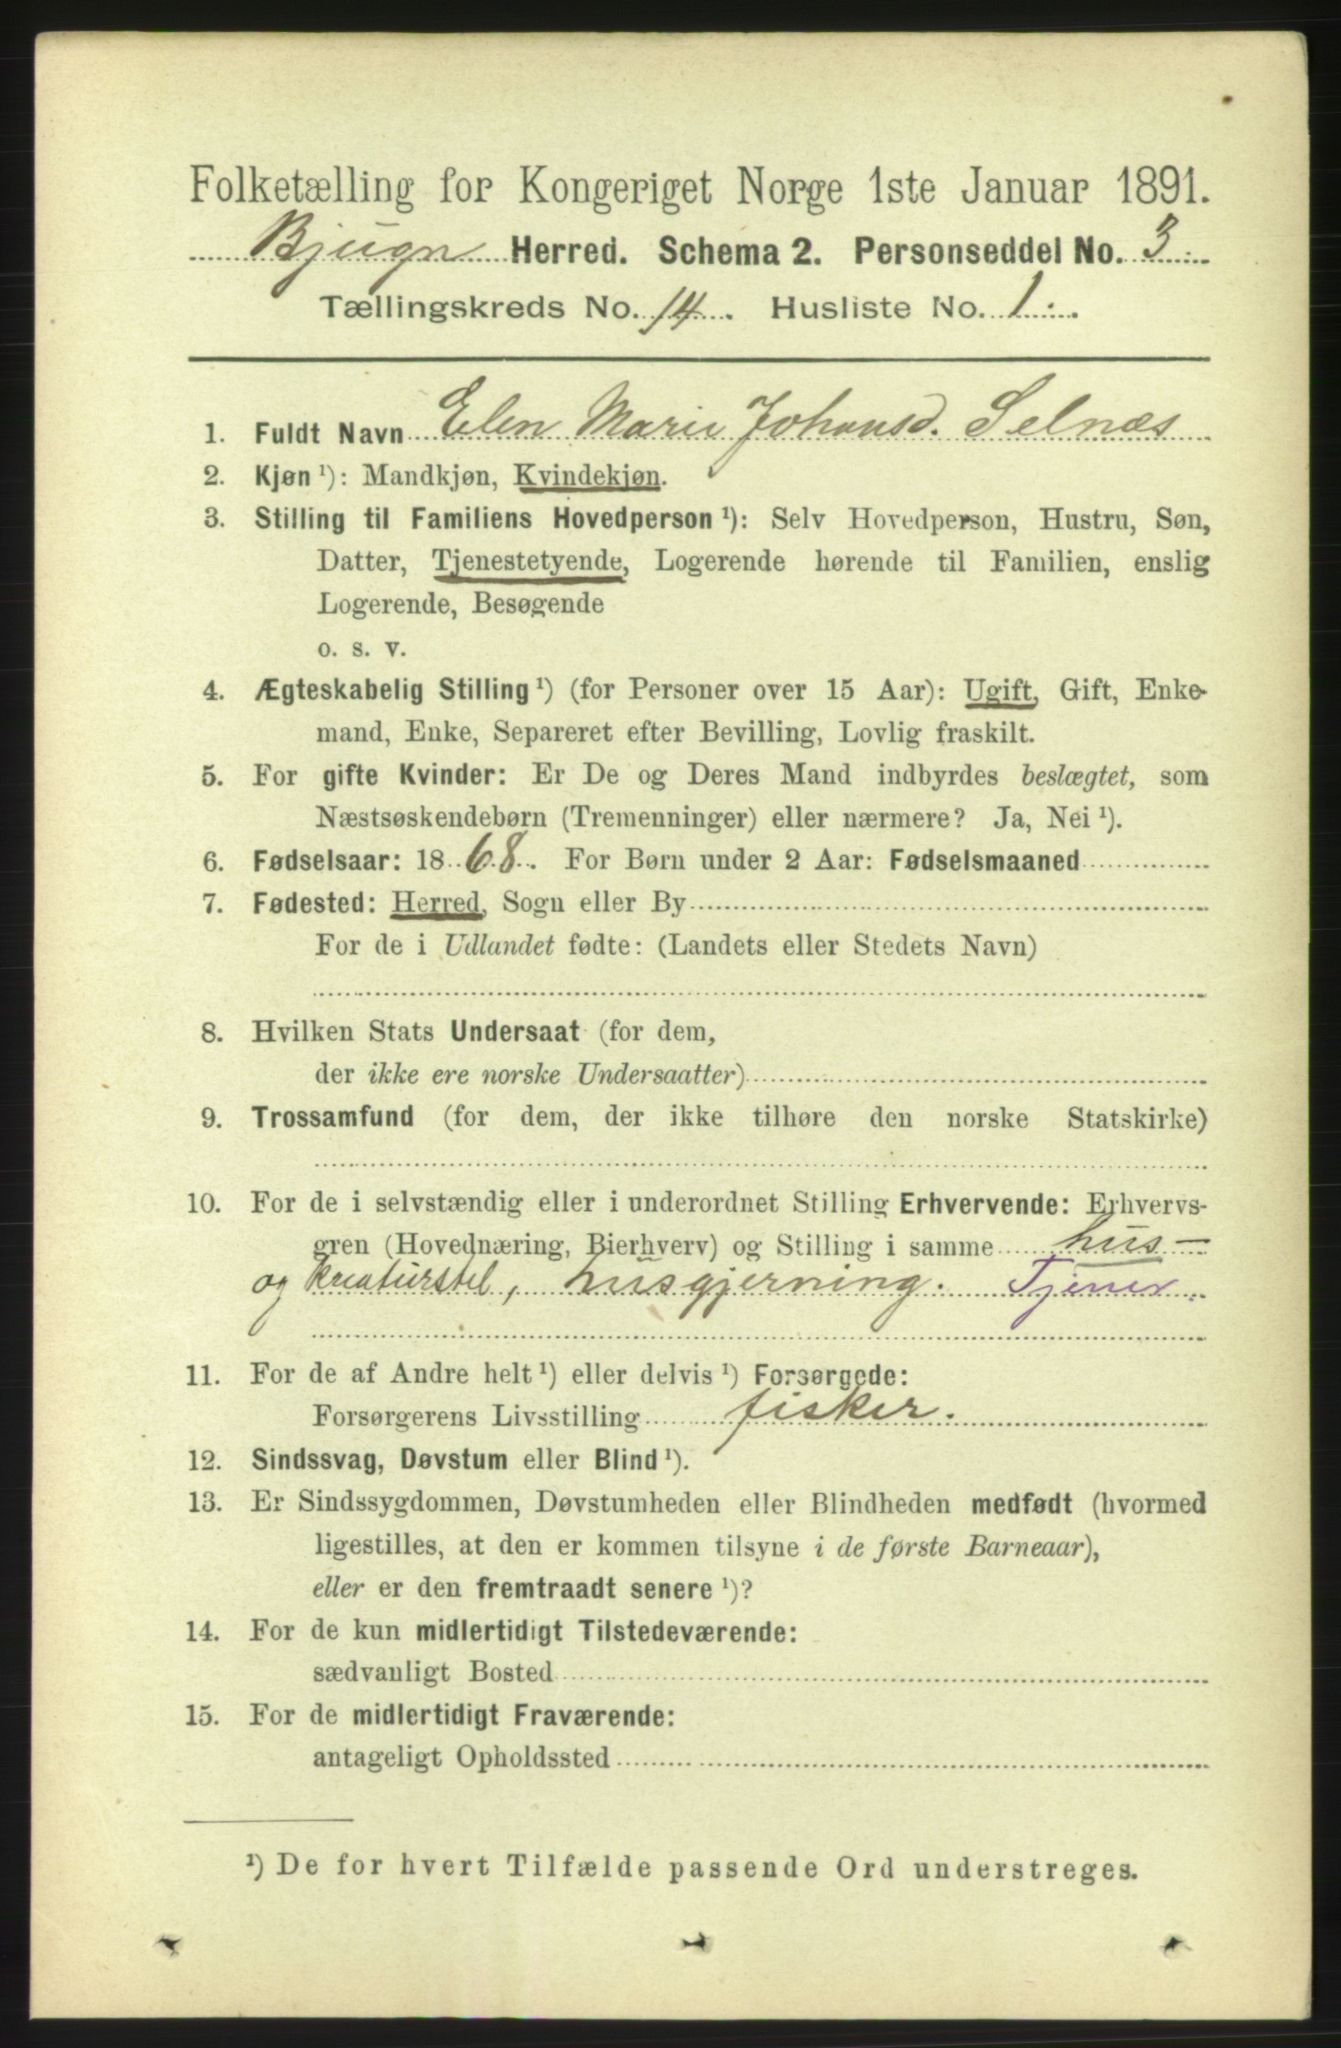 Folketælling for Kongeriget Norge 1ste Januar 1891.
Bjugn Herred. Schema 2. Personseddel No. 3.
Tællingskreds No. 14. Husliste No. 1.
1. Fuldt Navn Elen Marie Johansd. Selnæs
2. Kjøn ¹): Mandkjøn, Kvindekjøn.
3. Stilling til Familiens Hovedperson ¹): Selv Hovedperson, Hustru, Søn,
Datter, Tjenestetyende, Logerende hørende til Familien, enslig
Logerende, Besøgende
o. s. v.
4. Ægteskabelig Stilling ¹) (for Personer over 15 Aar): Ugift, Gift, Enke-
mand, Enke, Separeret efter Bevilling, Lovlig fraskilt.
5. For gifte Kvinder: Er De og Deres Mand indbyrdes beslægtet, som
Næstsøskendebørn (Tremenninger) eller nærmere? Ja, Nei ¹).
6. Fødselsaar: 1868. For Børn under 2 Aar: Fødselsmaaned
7. Fødested: Herred, Sogn eller By
For de i Udlandet fødte: (Landets eller Stedets Navn)
8. Hvilken Stats Undersaat (for dem,
der ikke ere norske Undersaatter)
9. Trossamfund (for dem, der ikke tilhøre den norske Statskirke)
10. For de i selvstændig eller i underordnet Stilling Erhvervende: Erhvervs-
gren (Hovednæring, Bierhverv) og Stilling i samme hus-
og kreaturstel, husgjerning. Tjener.
11. For de af Andre helt ¹) eller delvis ¹) Forsørgede:
Forsørgerens Livsstilling fisker.
12. Sindssvag, Døvstum eller Blind ¹).
13. Er Sindssygdommen, Døvstumheden eller Blindheden medfødt (hvormed
ligestilles, at den er kommen tilsyne i de første Barneaar),
eller er den fremtraadt senere ¹)?
14. For de kun midlertidigt Tilstedeværende:
sædvanligt Bosted
15. For de midlertidigt Fraværende:
antageligt Opholdssted
¹) De for hvert Tilfælde passende Ord understreges.